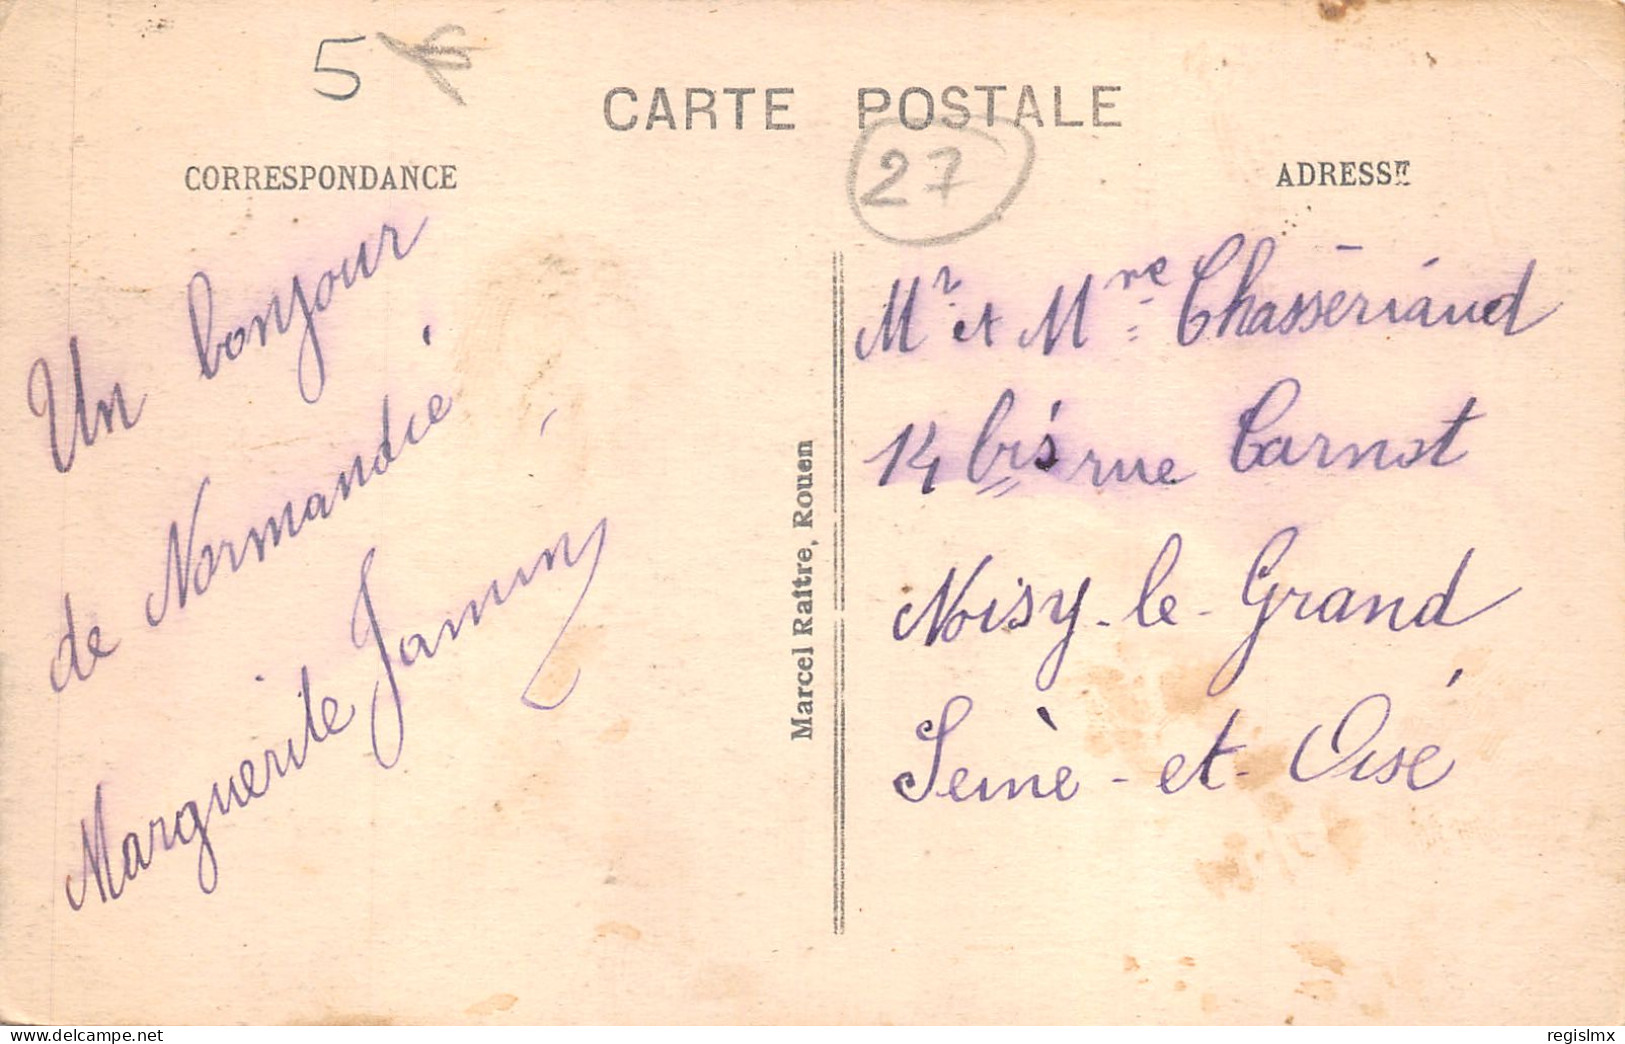 5
CARTE POSTALE
27
CORRESPONDANCE
ADRESSE
Un bonjour
de Normandie
Marguerite
Marcel Raitre, Rouen
Mr et Mme Chassériaud
14 bis rue Carnot
Noisy-le-Grand
Seine-et-Oise
www.delcampe.net
regislmx